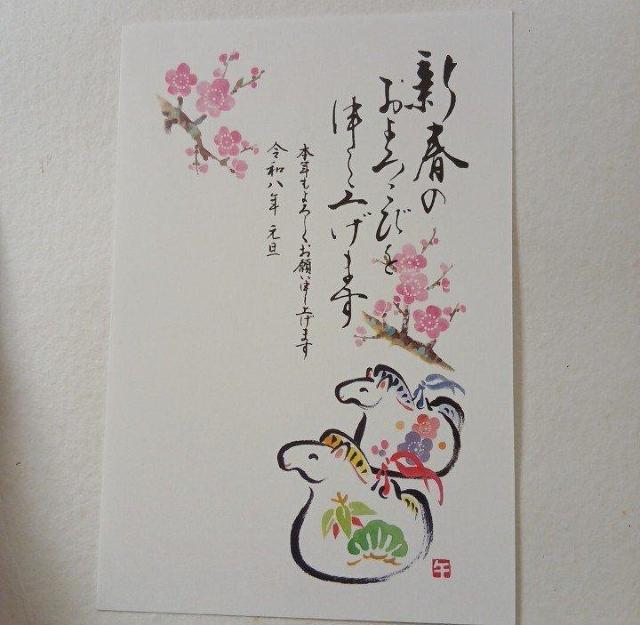 新春の
およろこびを
申し上げます
本年もよろしくお願い申し上げます
令和八年 元旦
午